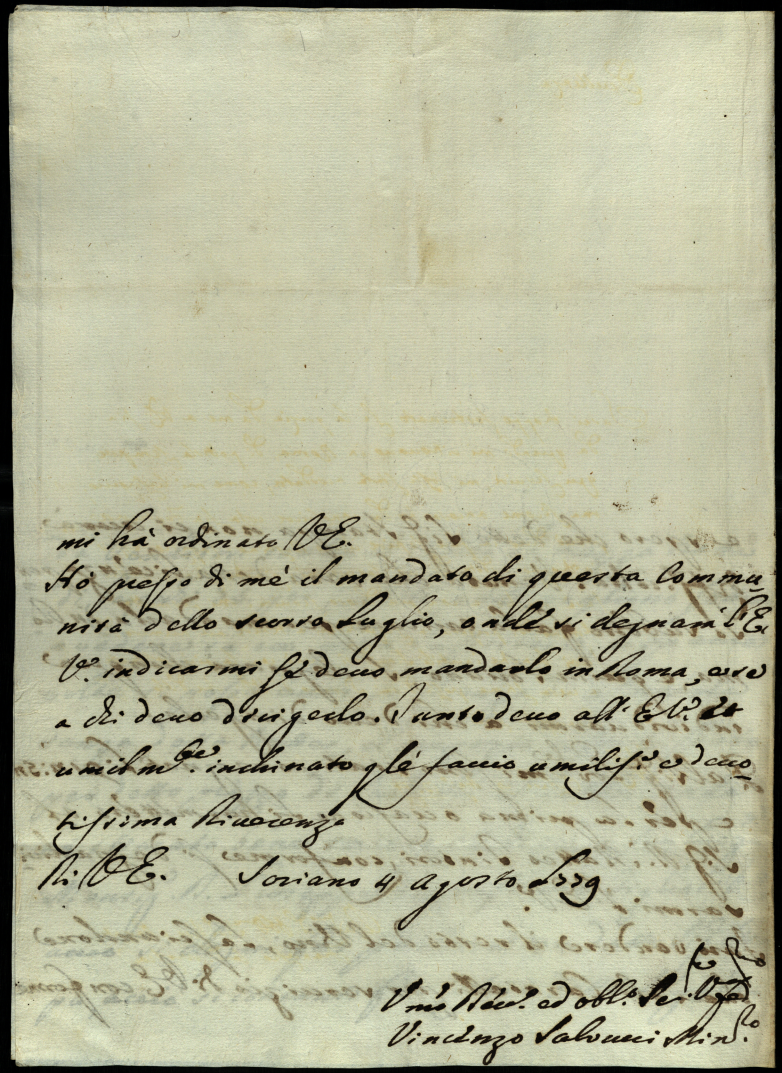 mi hà ordinato VE.
Hò presso di mè il mandato di questa Commu-
nità dello scorso Luglio, onde si degnarà l'E.
V.ª indicarmi se devo mandarlo in Roma, e se
a chi devo dirigerlo. Tanto devo all' E. V.ª
umilm.te inchinato gle faccio umiliss.ª e devo-
tissima Riverenza
Di VE. Soriano 4 Agosto 1779
Umo Dev.º ed obbl.º Ser.
Vincenzo Salvucci Min.ro